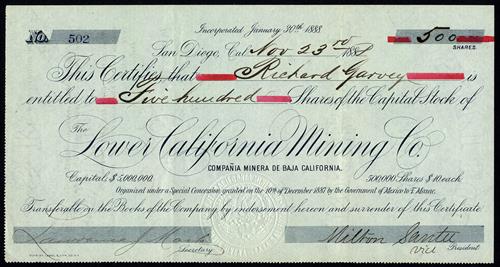 Incorporated January 30th 1888
No. 502
500 SHARES
San Diego, Cal. Nov 23rd 1888
This Certifies that Richard Garvey is
entitled to Five hundred Shares of the Capital Stock of
The
Lower California Mining Co.
COMPAÑIA MINERA DE BAJA CALIFORNIA.
Capital, $5,000,000. 500,000 Shares $10 each.
Organized under a Special Concession granted on the 10th of December 1887 by the Government of Mexico to
Transferable on the Books of the Company by endorsement hereon and surrender of this Certificate
J. Milton Santee
Secretary. Vice President